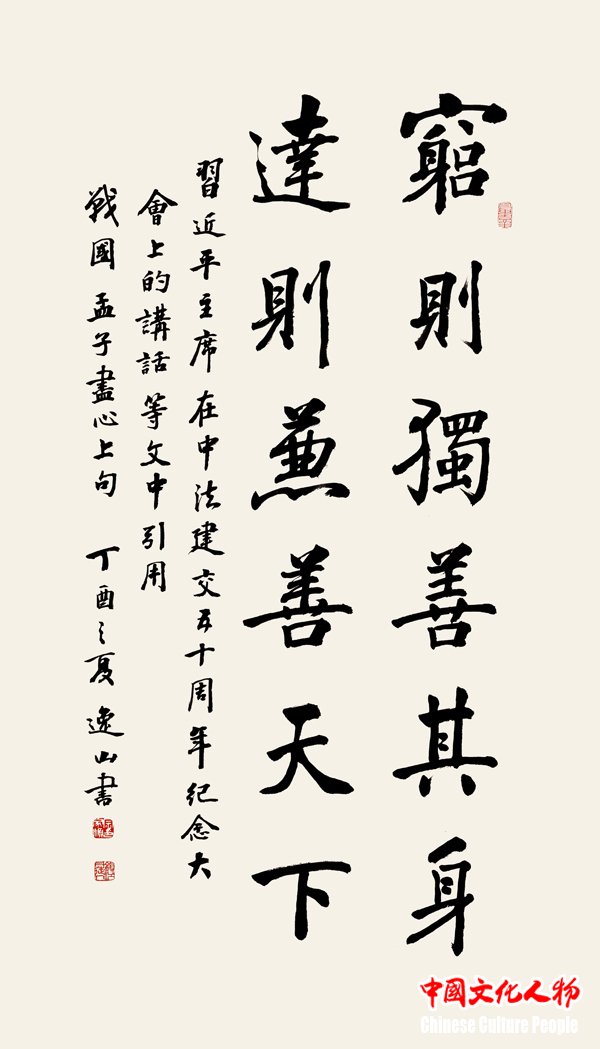 窮則獨善其身
達則蒹善天下
習近平主席在中法建交五十周年紀念大
會上的講話等文中引用
戰國孟子盡心上句 丁酉之夏逸山書
中国文化人物
Chinese Culture People